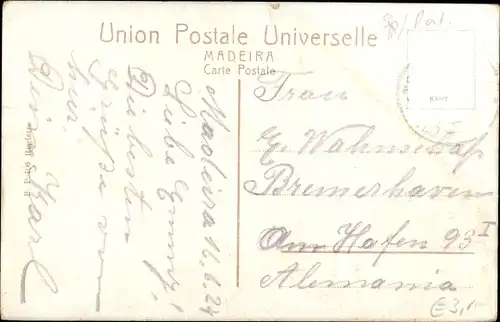 Union Postale Universelle
MADEIRA
Carte Postale
Madeira 16.6.24
Liebe Emmy!
Die besten
Grüße von
hier.
Dein Karl
Frau
E. Wahnschaf
Bremerhaven
Am Hafen 93 I
Alemania
€3,-